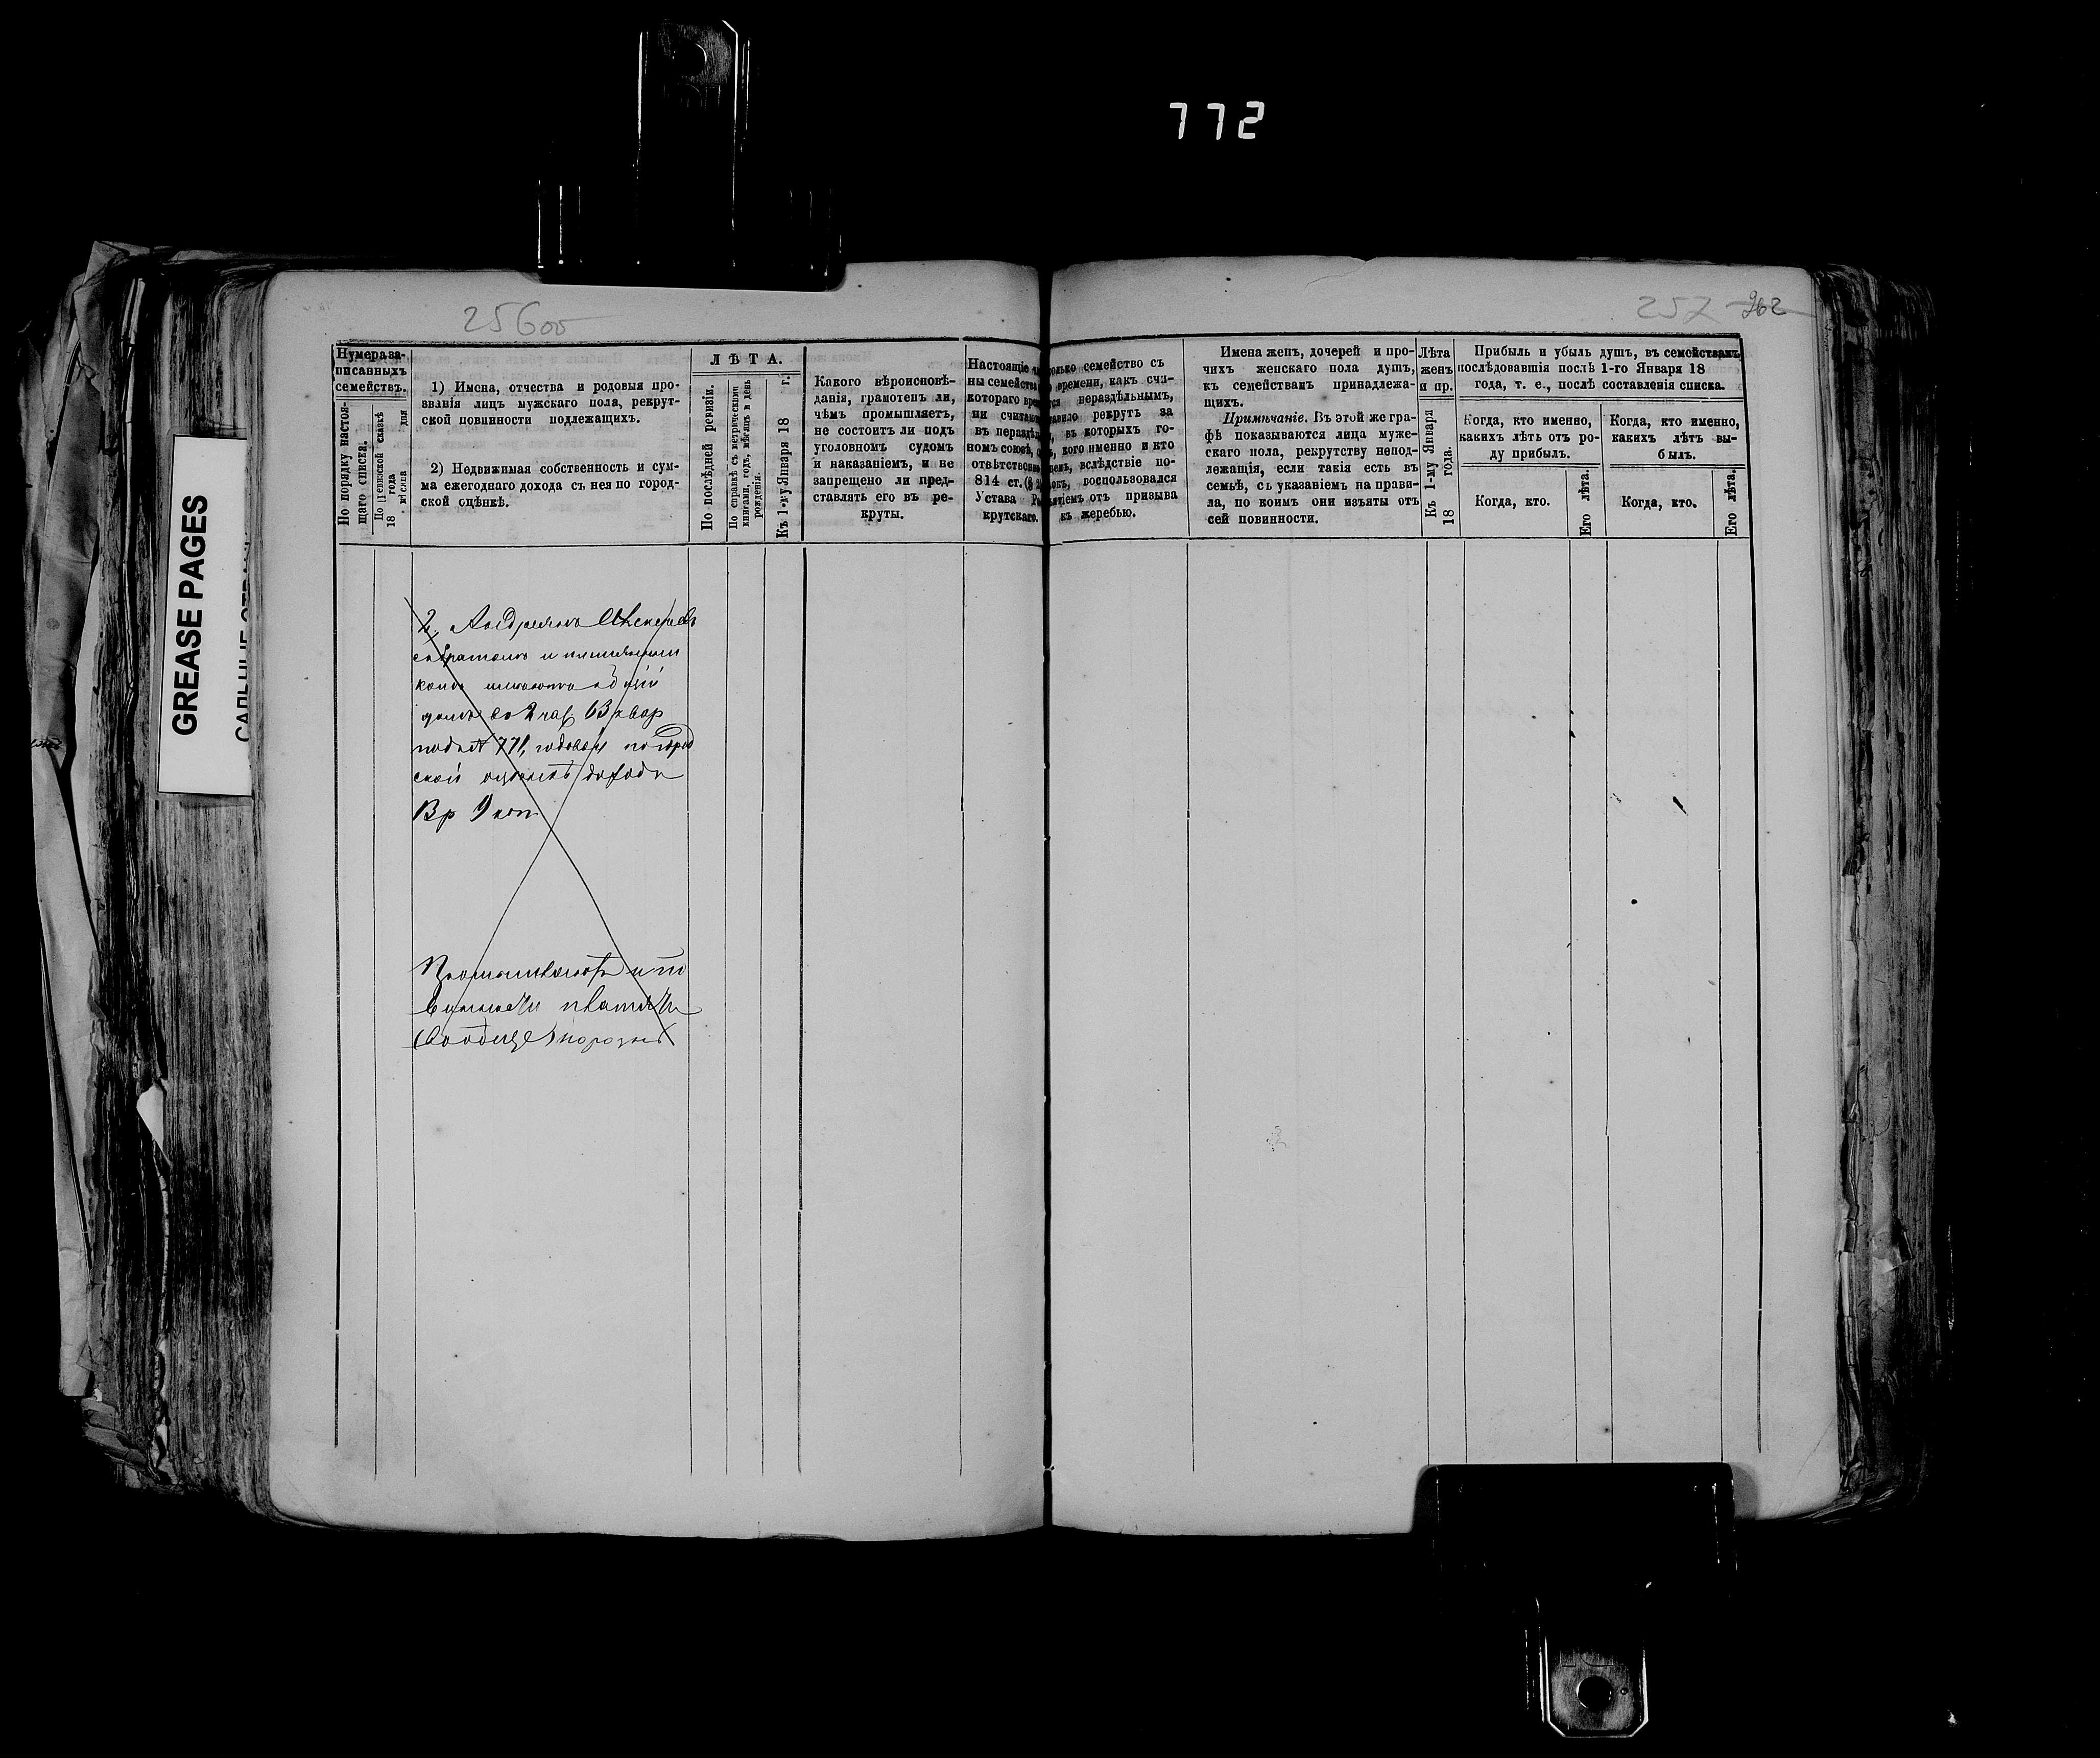 772
256об
257 262
GREASE PAGES
Нумера за-
писанныхъ
семействъ.
По порядку настоя-
щаго списка.
По ревизской сказкѣ
18 года для
мѣсяца
1) Имена, отчества и родовыя про-
званія лицъ мужскаго пола, рекрут-
ской повинности подлежащихъ.
2) Недвижимая собственность и сум-
ма ежегоднаго дохода съ нея по город-
ской оцѣнкѣ.
ЛѢТА.
По послѣдней ревизіи.
По справкѣ съ метрическими
книгами, годъ, мѣсяцъ и день
рожденія.
Къ 1-му Января 18 г.
Какого вѣроисповѣ-
данія, грамотенъ ли,
чѣмъ промышляетъ,
не состоитъ ли подъ
уголовномъ судомъ
и наказаніемъ, и не
запрещено ли пред-
ставлять его въ ре-
круты.
Настоящіе
ны семейства
котораго
ни считаю
въ нераздѣ
номъ союзѣ,
отвѣтственно
814 ст.
Устава
крутскаго.
семейство съ
времени, какъ счи-
нераздѣльнымъ,
рекрутъ за
въ которыхъ го-
кого именно и кто
вслѣдствіе по-
воспользовался
отъ призыва
къ жеребью.
Имена женъ, дочерей и про-
чихъ женскаго пола душъ,
къ семействамъ принадлежа-
щихъ.
Примѣчаніе. Въ этой же гра-
фѣ показываются лица муже-
скаго пола, рекрутству непод-
лежащія, если такія есть въ
семьѣ, съ указаніемъ на прави-
ла, по коимъ они изъяты отъ
сей повинности.
Лѣта
женъ
и пр.
Къ 1-му Января
18 года.
Прибыль и убыль душъ, въ семействахъ
послѣдовавшія послѣ 1-го Января 18
года, т. е., послѣ составленія списка.
Когда, кто именно,
какихъ лѣтъ отъ ро-
ду прибылъ.
Когда, кто.
Его лѣта.
Когда, кто именно,
какихъ лѣтъ вы-
былъ.
Когда, кто.
Его лѣта.
2,
съ братомъ и племянни
комъ имѣютъ общій
домъ во 2 час 63 квар
под № 771, годовой по город
ской оцѣнкѣ дохода
9 коп
и по
винности платятъ